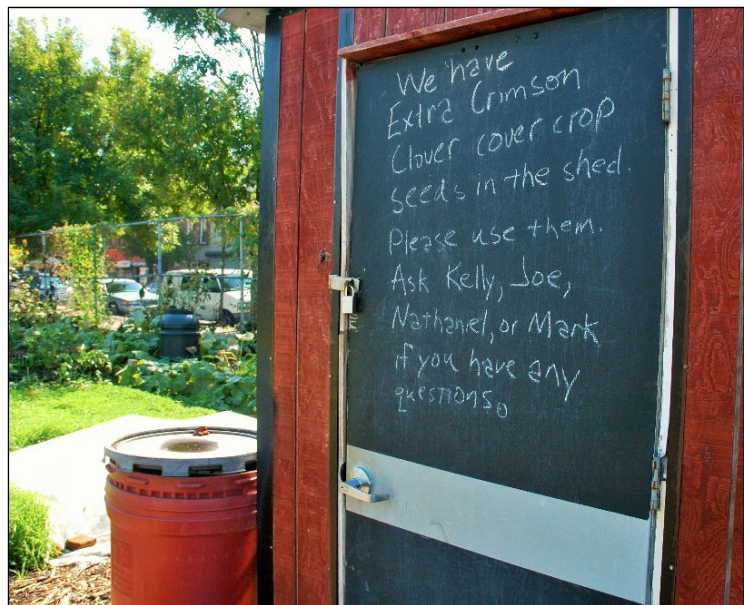 We have
Extra Crimson
Clover cover crop
seeds in the shed.
Please use them.
Ask Kelly, Joe,
Nathaniel, or Mark
if you have any
questions.